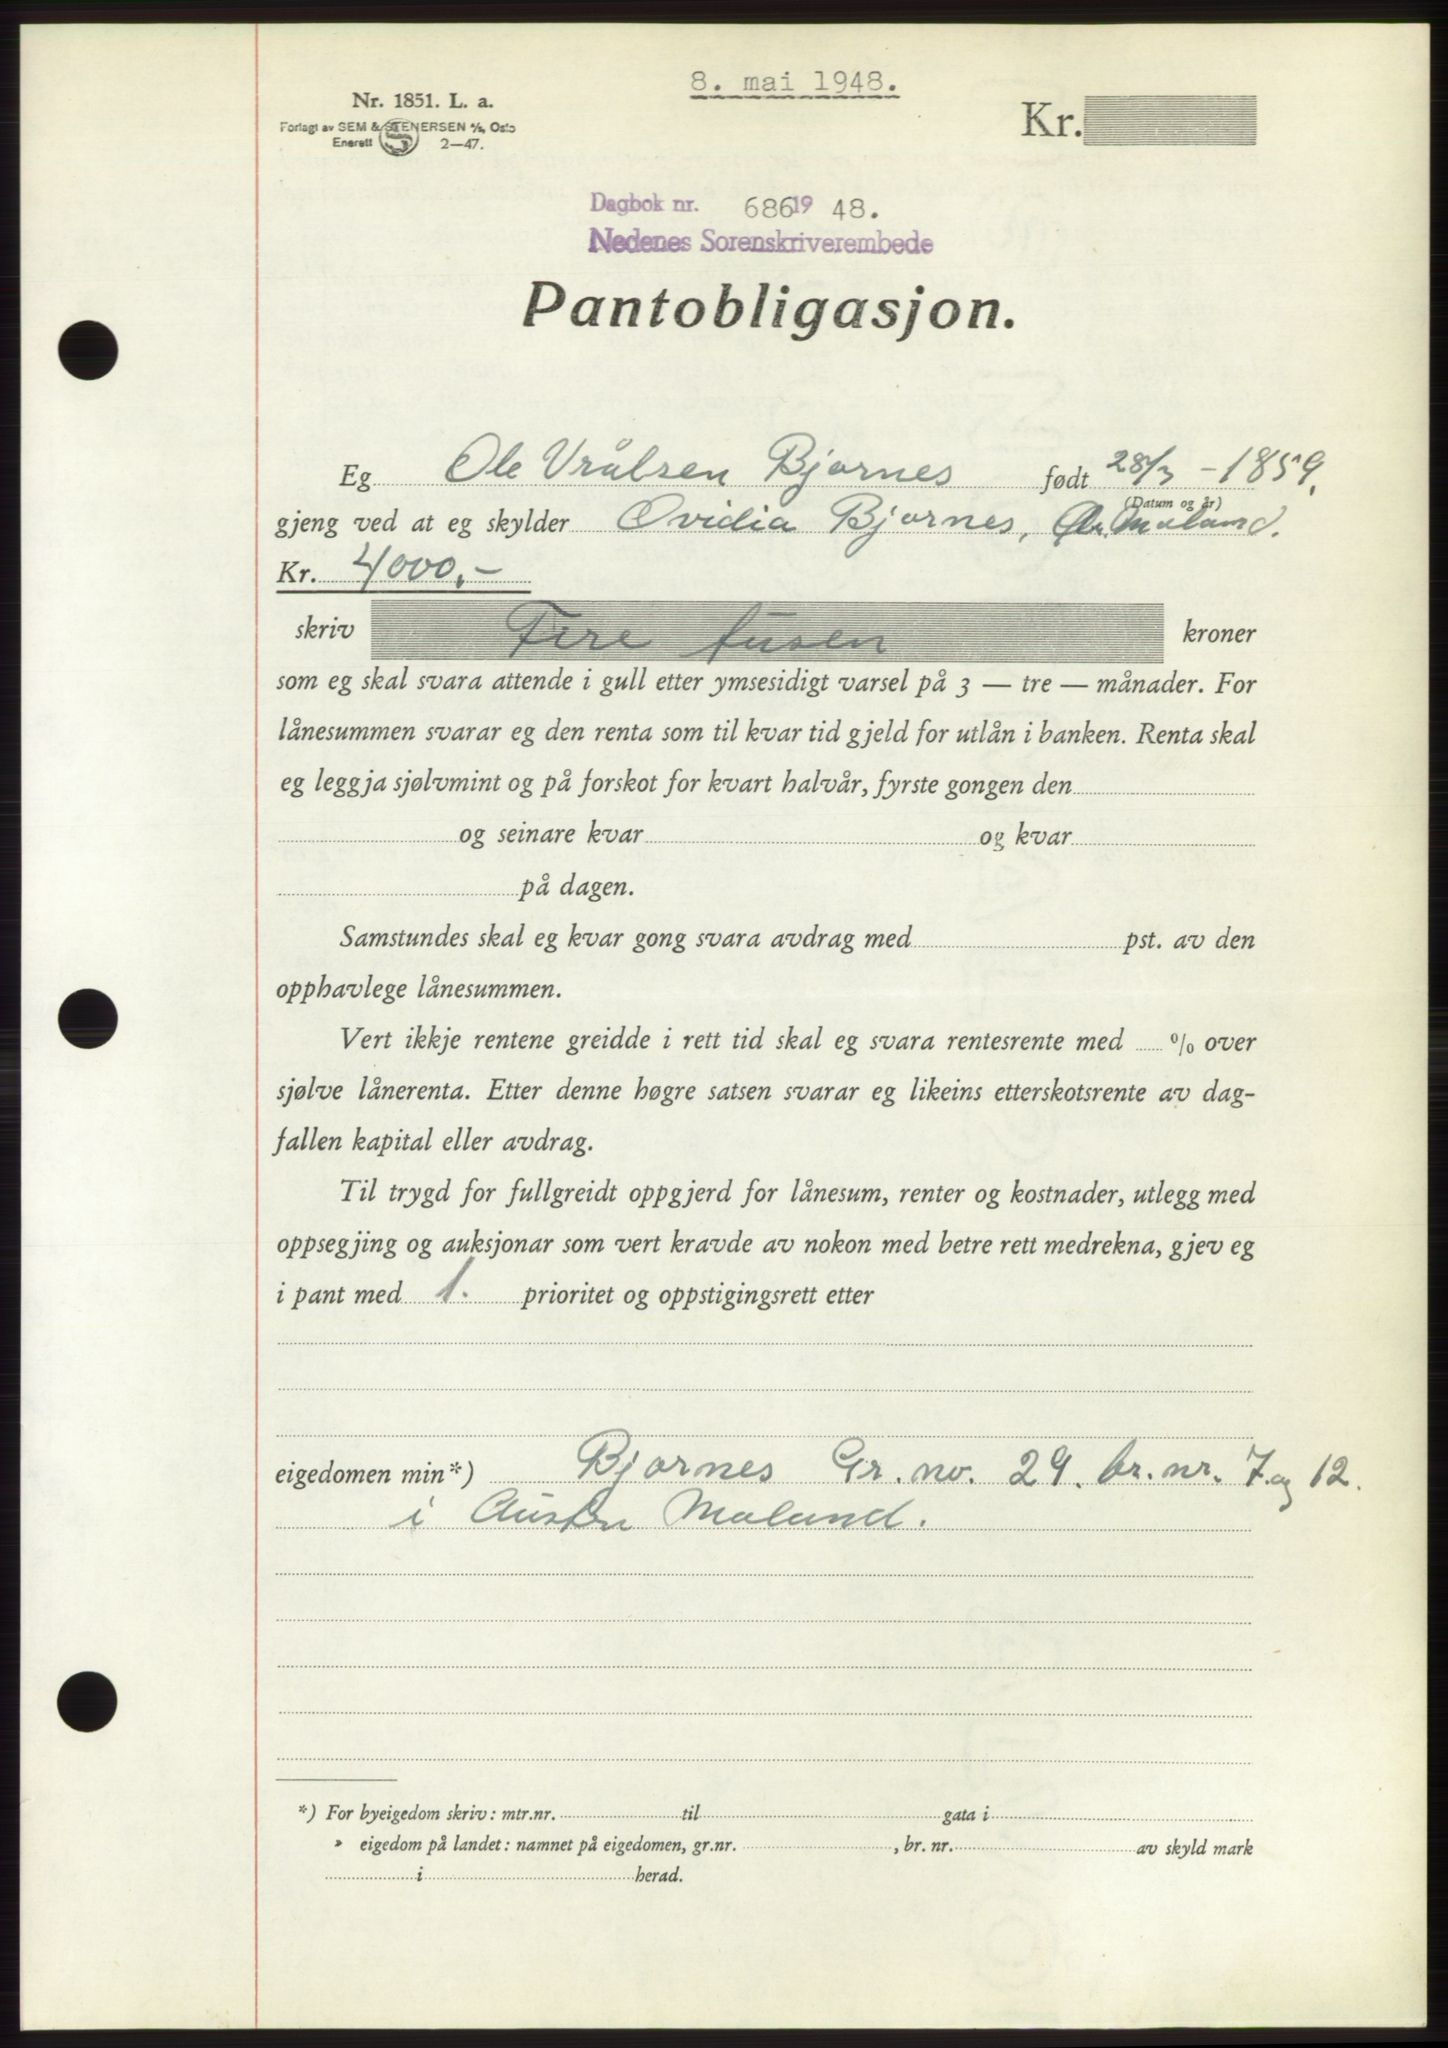 8. mai 1948.
Nr. 1851. L. a.
Forlagt av SEM & STENERSEN A/S, Oslo
Enerett 2—47.
Kr.
Dagbok nr. 686 19 48.
Nedenes Sorenskriverembede
Pantobligasjon.
Eg Ole Vrålsen Bjornes født 28/3 - 1859.
(Datum og år)
gjeng ved at eg skylder Ovidia Bjornes, Au. Moland.
Kr. 4000,-
skriv Fire tusen kroner
som eg skal svara attende i gull etter ymsesidigt varsel på 3 — tre — månader. For
lånesummen svarar eg den renta som til kvar tid gjeld for utlån i banken. Renta skal
eg leggja sjølvmint og på forskot for kvart halvår, fyrste gongen den
og seinare kvar og kvar
på dagen.
Samstundes skal eg kvar gong svara avdrag med pst. av den
opphavlege lånesummen.
Vert ikkje rentene greidde i rett tid skal eg svara rentesrente med % over
sjølve lånerenta. Etter denne høgre satsen svarar eg likeins etterskotsrente av dag-
fallen kapital eller avdrag.
Til trygd for fullgreidt oppgjerd for lånesum, renter og kostnader, utlegg med
oppsegjing og auksjonar som vert kravde av nokon med betre rett medrekna, gjev eg
i pant med 1. prioritet og oppstigingsrett etter
eigedomen min*) Bjornes Gr. no. 29. br. nr. 7. og 12.
i Austre Moland.
*) For byeigedom skriv: mtr.nr. til gata i
» eigedom på landet: namnet på eigedomen, gr.nr. , br. nr. av skyld mark
i herad.